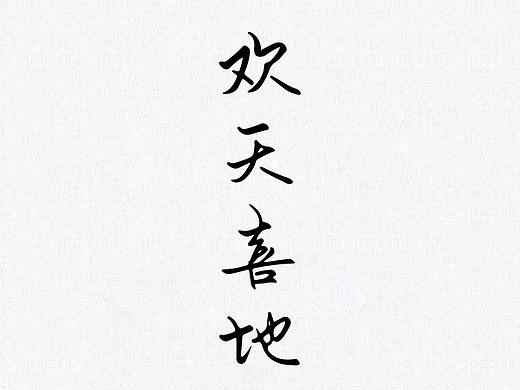 欢天喜地